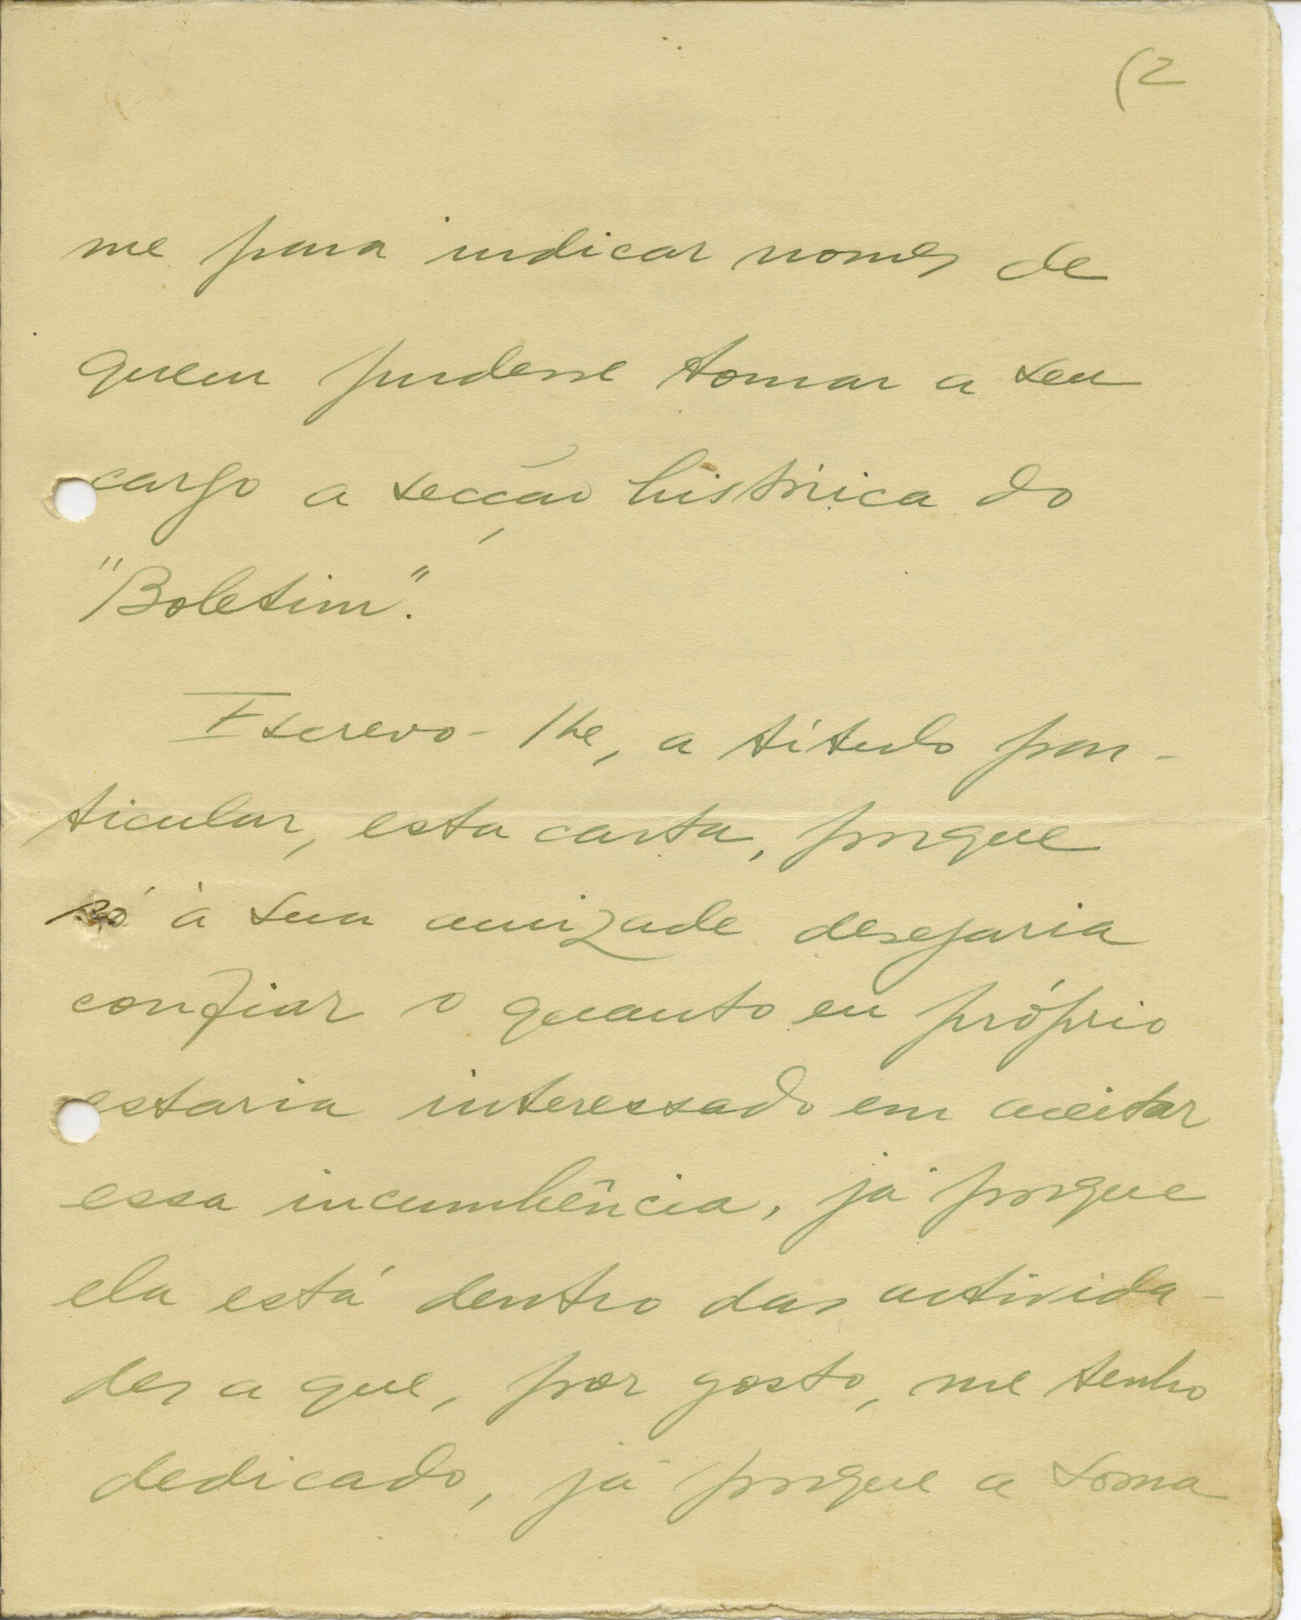 (2
me para indicar nomes de
quem pudesse tomar a seu
cargo a secção histórica do
"Boletim".
Escrevo-lhe, a título par-
ticular, esta carta, porque
só à sua amizade desejaria
confiar o quanto eu próprio
estaria interessado em aceitar
essa incumbência, já porque
ela está dentro das activida-
des a que, por gosto, me tenho
dedicado, já porque a soma